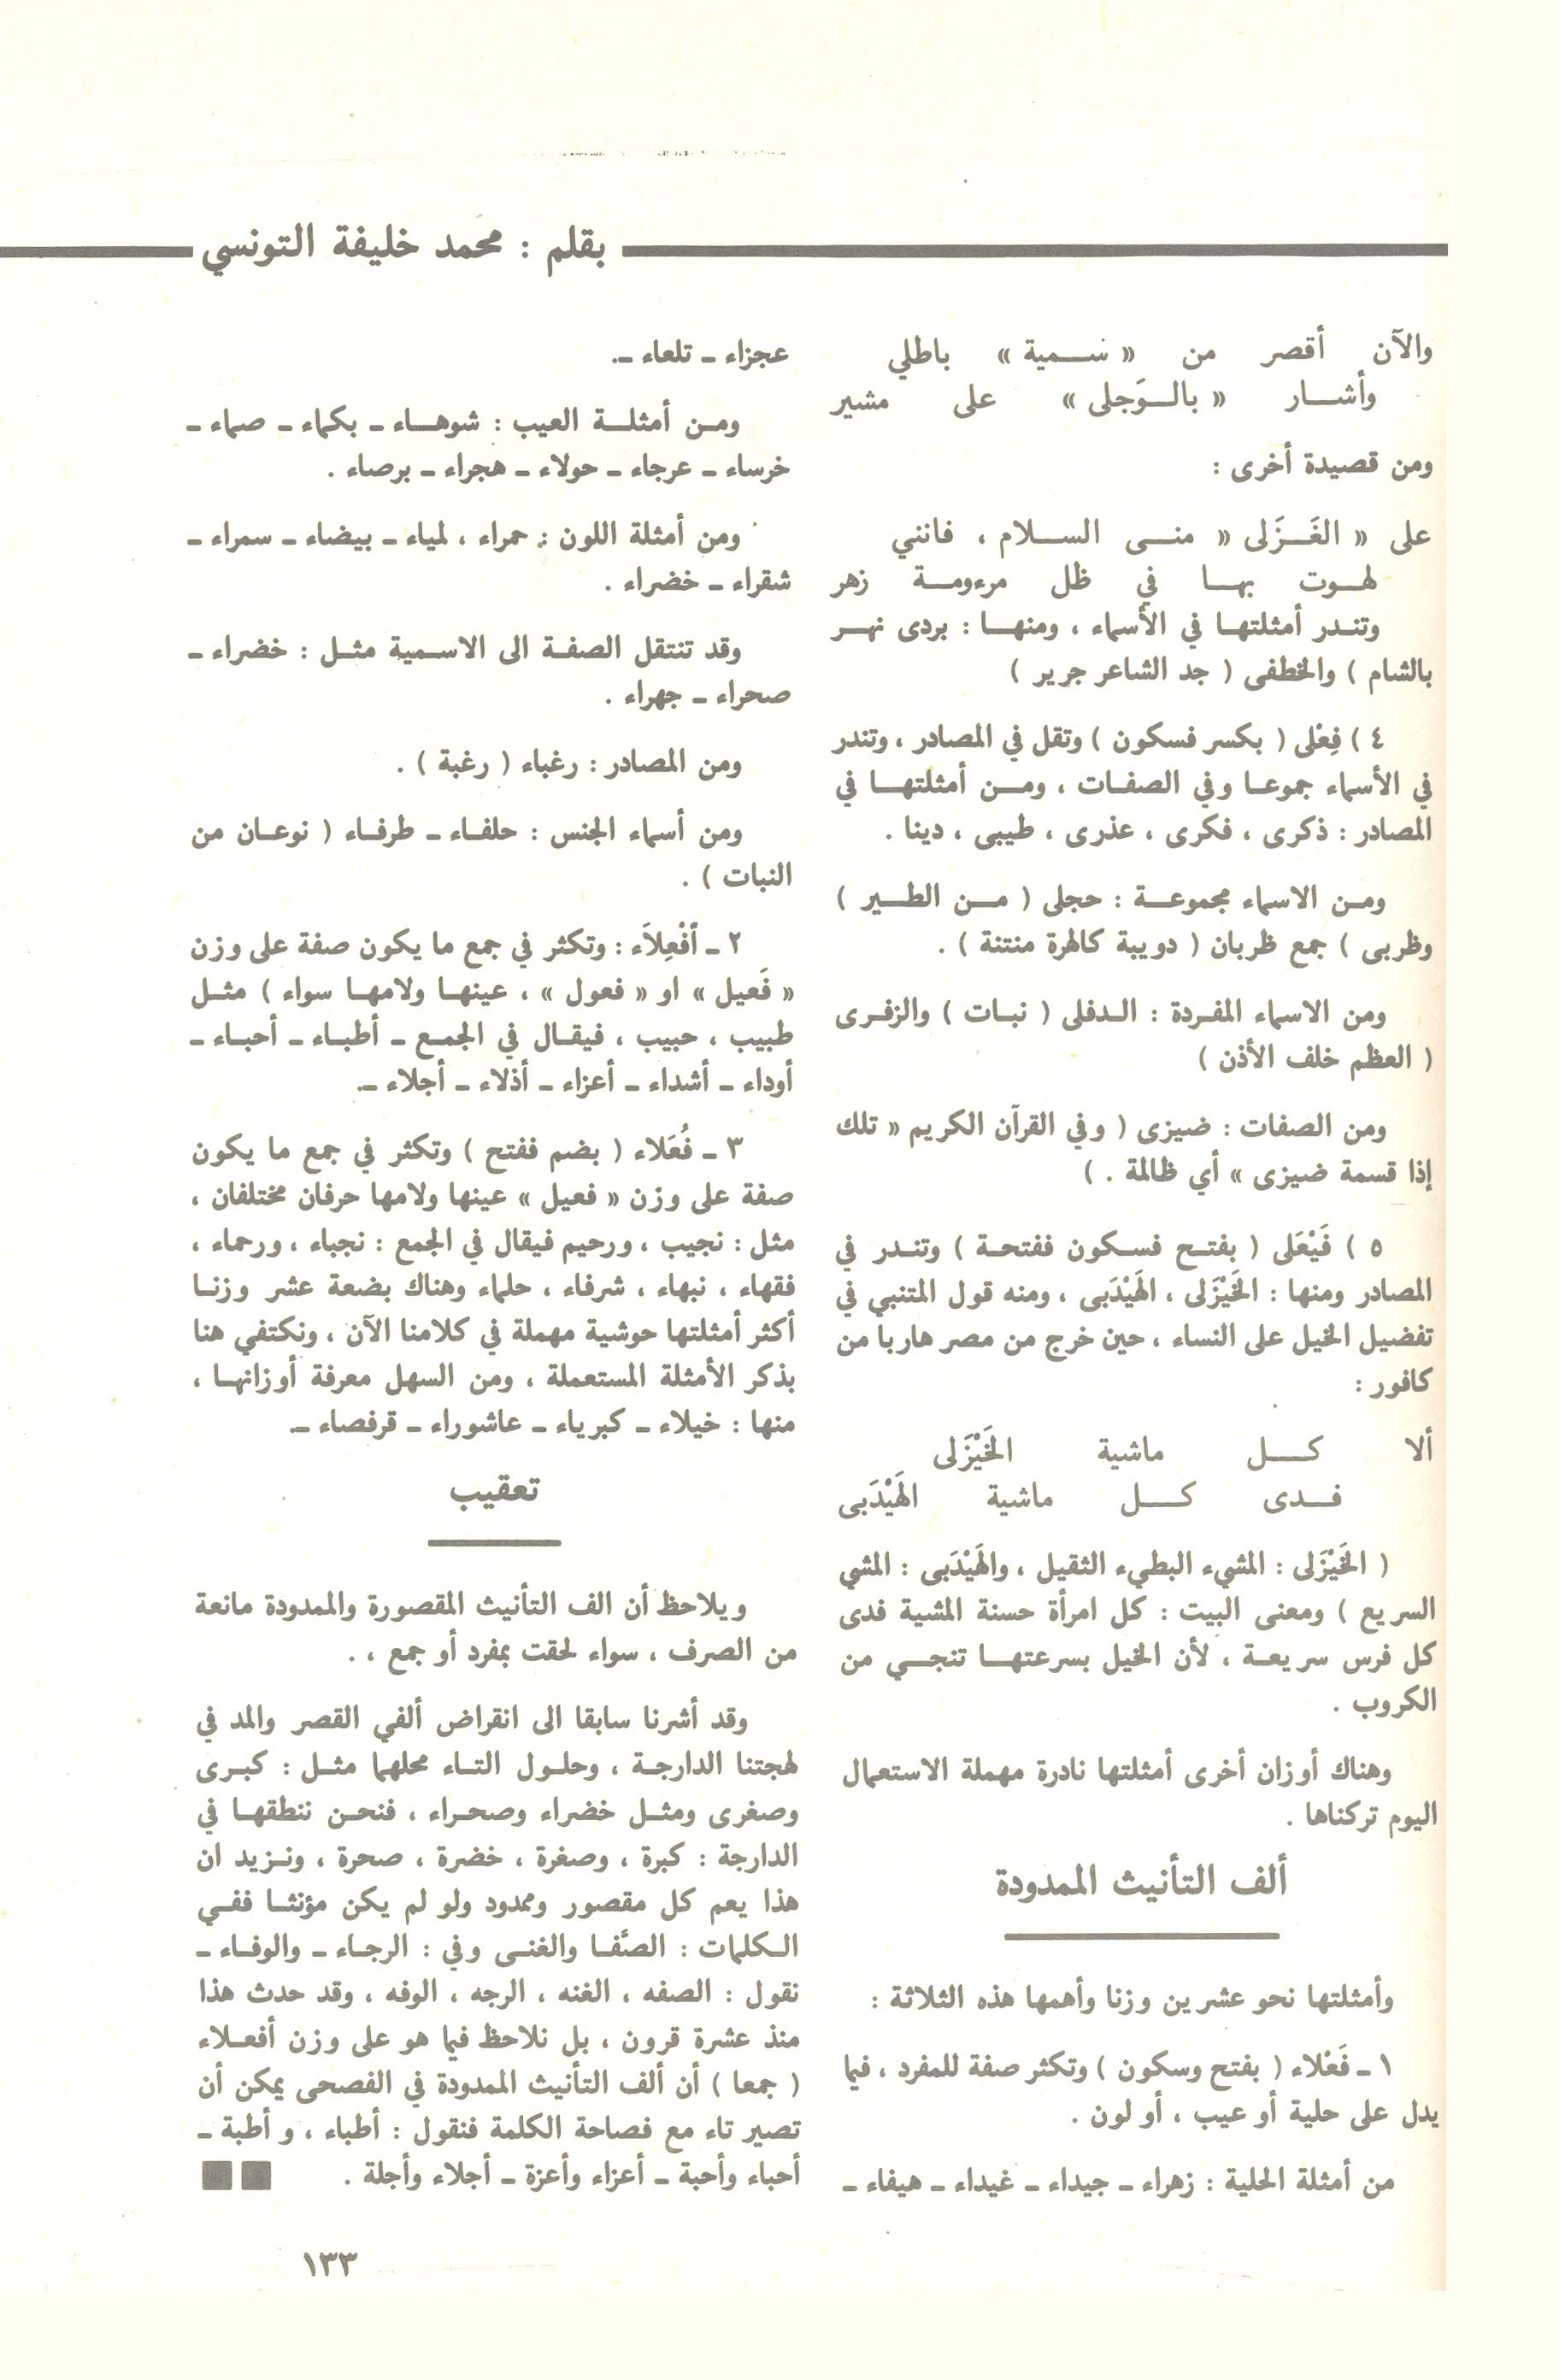 بقلم : محمد خليفة التونسي
والآن أقصر من « سمية » باطلي
وأشار « بالوَجلى » على مشير
ومن قصيدة أخرى :
على « الغَزَلى « منى السلام ، فانني
لهوت بها في ظل مرءومة زهر
وتندر أمثلتها في الأسماء ، ومنها : بردى نهر
بالشام ) والخطفى ( جد الشاعر جرير )
٤ ) فِعْلى ( بكسر فسكون ) وتقل في المصادر ، وتندر
في الأسماء جموعا وفي الصفات ، ومن أمثلتها في
المصادر : ذكرى ، فكرى ، عذرى ، طيبى ، دينا .
ومن الاسماء مجموعة : حجلى ( من الطير )
وظربى ) جمع ظربان ( دويبة كالهرة منتنة ) .
ومن الاسماء المفردة : الدفلى ( نبات ) والزفرى
( العظم خلف الأذن )
ومن الصفات : ضيزى ( وفي القرآن الكريم « تلك
إذا قسمة ضيزى » أي ظالمة . )
٥ ) فَيْعَلى ( بفتح فسكون ففتحة ) وتندر في
المصادر ومنها : الخَيْزَلى ، الهَيْدَبى ، ومنه قول المتنبي في
تفضيل الخيل على النساء ، حين خرج من مصر هاربا من
كافور :
ألا كل ماشية الخَيْزَلى
فدى كل ماشية الهَيْدَبى
( الخَيْزَلى : المشيء البطيء الثقيل ، والهَيْدَبى : المشي
السريع ) ومعنى البيت : كل امرأة حسنة المشية فدى
كل فرس سريعة ، لأن الخيل بسرعتها تنجي من
الكروب .
وهناك أوزان أخرى أمثلتها نادرة مهملة الاستعمال
اليوم تركناها .
ألف التأنيث الممدودة
وأمثلتها نحو عشرين وزنا وأهمها هذه الثلاثة :
١ ـ فَعْلاء ( بفتح وسكون ) وتكثر صفة للمفرد ، فيما
يدل على حلية أو عيب ، أو لون .
من أمثلة الحلية : زهراء ـ جيداء ـ غيداء ـ هيفاء ـ
عجزاء ـ تلعاء ـ.
ومن أمثلة العيب : شوهاء ـ بكماء ـ صماء ـ
خرساء ـ عرجاء ـ حولاء ـ هجراء ـ برصاء .
ومن أمثلة اللون : حمراء ، لمياء ـ بيضاء ـ سمراء ـ
شقراء ـ خضراء .
وقد تنتقل الصفة الى الاسمية مثل : خضراء ـ
صحراء ـ جهراء .
ومن المصادر : رغباء ( رغبة ) .
ومن أسماء الجنس : حلفاء ـ طرفاء ( نوعان من
النبات ) .
٢ ـ أَفْعِلاَء : وتكثر في جمع ما يكون صفة على وزن
« فَعيل » او « فعول » ، عينها ولامها سواء ) مثل
طبيب ، حبيب ، فيقال في الجمع ـ أطباء ـ أحباء ـ
أوداء ـ أشداء ـ أعزاء ـ أذلاء ـ أجلاء ـ.
٣ ـ فُعَلاء ( بضم ففتح ) وتكثر في جمع ما يكون
صفة على وزن « فعيل » عينها ولامها حرفان مختلفان ،
مثل : نجيب ، ورحيم فيقال في الجمع : نجباء ، ورحماء ،
فقهاء ، نبهاء ، شرفاء ، حلماء وهناك بضعة عشر وزنا
أكثر أمثلتها حوشية مهملة في كلامنا الآن ، ونكتفي هنا
بذكر الأمثلة المستعملة ، ومن السهل معرفة أوزانها ،
منها : خيلاء ـ كبرياء ـ عاشوراء ـ قرفصاء ـ.
تعقيب
ويلاحظ أن الف التأنيث المقصورة والممدودة مانعة
من الصرف ، سواء لحقت بمفرد أو جمع ، .
وقد أشرنا سابقا الى انقراض ألفي القصر والمد في
لهجتنا الدارجة ، وحلول التاء محلهما مثل : كبرى
وصغرى ومثل خضراء وصحراء ، فنحن ننطقها في
الدارجة : كبرة ، وصغرة ، خضرة ، صحرة ، ونزيد ان
هذا يعم كل مقصور وممدود ولو لم يكن مؤنثا ففي
الكلمات : الصَّفا والغنى وفي : الرجاء ـ والوفاء ـ
نقول : الصفه ، الغنه ، الرجه ، الوفه ، وقد حدث هذا
منذ عشرة قرون ، بل نلاحظ فيما هو على وزن أفعلاء
( جمعا ) أن ألف التأنيث الممدودة في الفصحى يمكن أن
تصير تاء مع فصاحة الكلمة فنقول : أطباء ، و أطبة ـ
أحباء وأحبة ـ أعزاء وأعزة ـ أجلاء وأجلة .
١٣٣